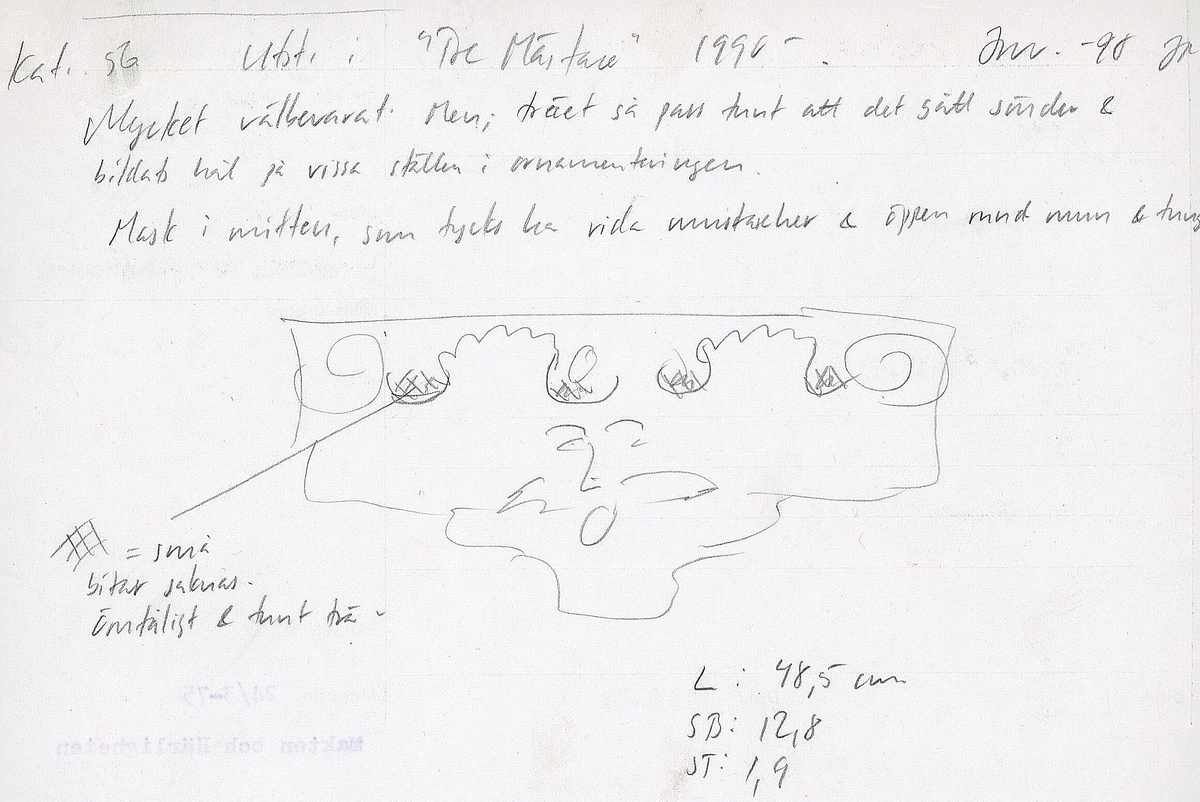 Kat. 56 Utst. i "Tre Mästare" 1990 - . Inv. -98
Mycket välbevarat. Men; träet så pass tunt att det gått sönder &
bildats hål på vissa ställen i ornamenteringen.
Mask i mitten, som tycks ha vida mustascher & öppen mun &
= små
bitar saknas.
Ömtåligt & tunt trä -
L: 48,5 cm
SB: 12,8
ST: 1,9
24/3-75
Makten och Härligheten